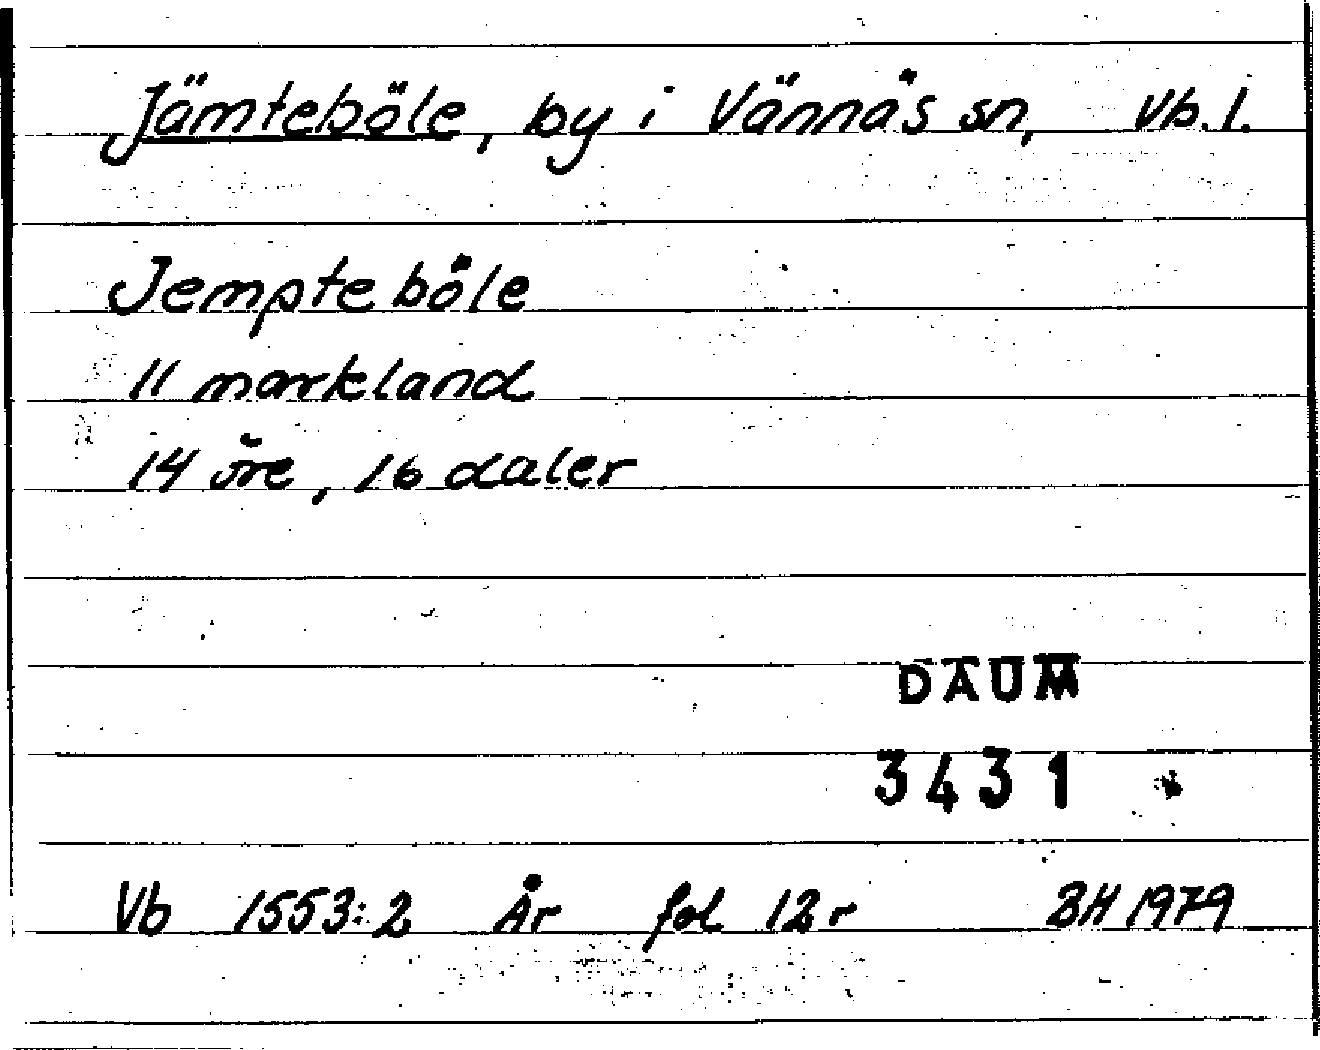 Jämteböle, by i Vännäs sn, Vb. l.
Jempteböle
11 markland
14 öre, 16 daler
DAUM
3431
Vb 1553:2 År fol 12 r BH 1979